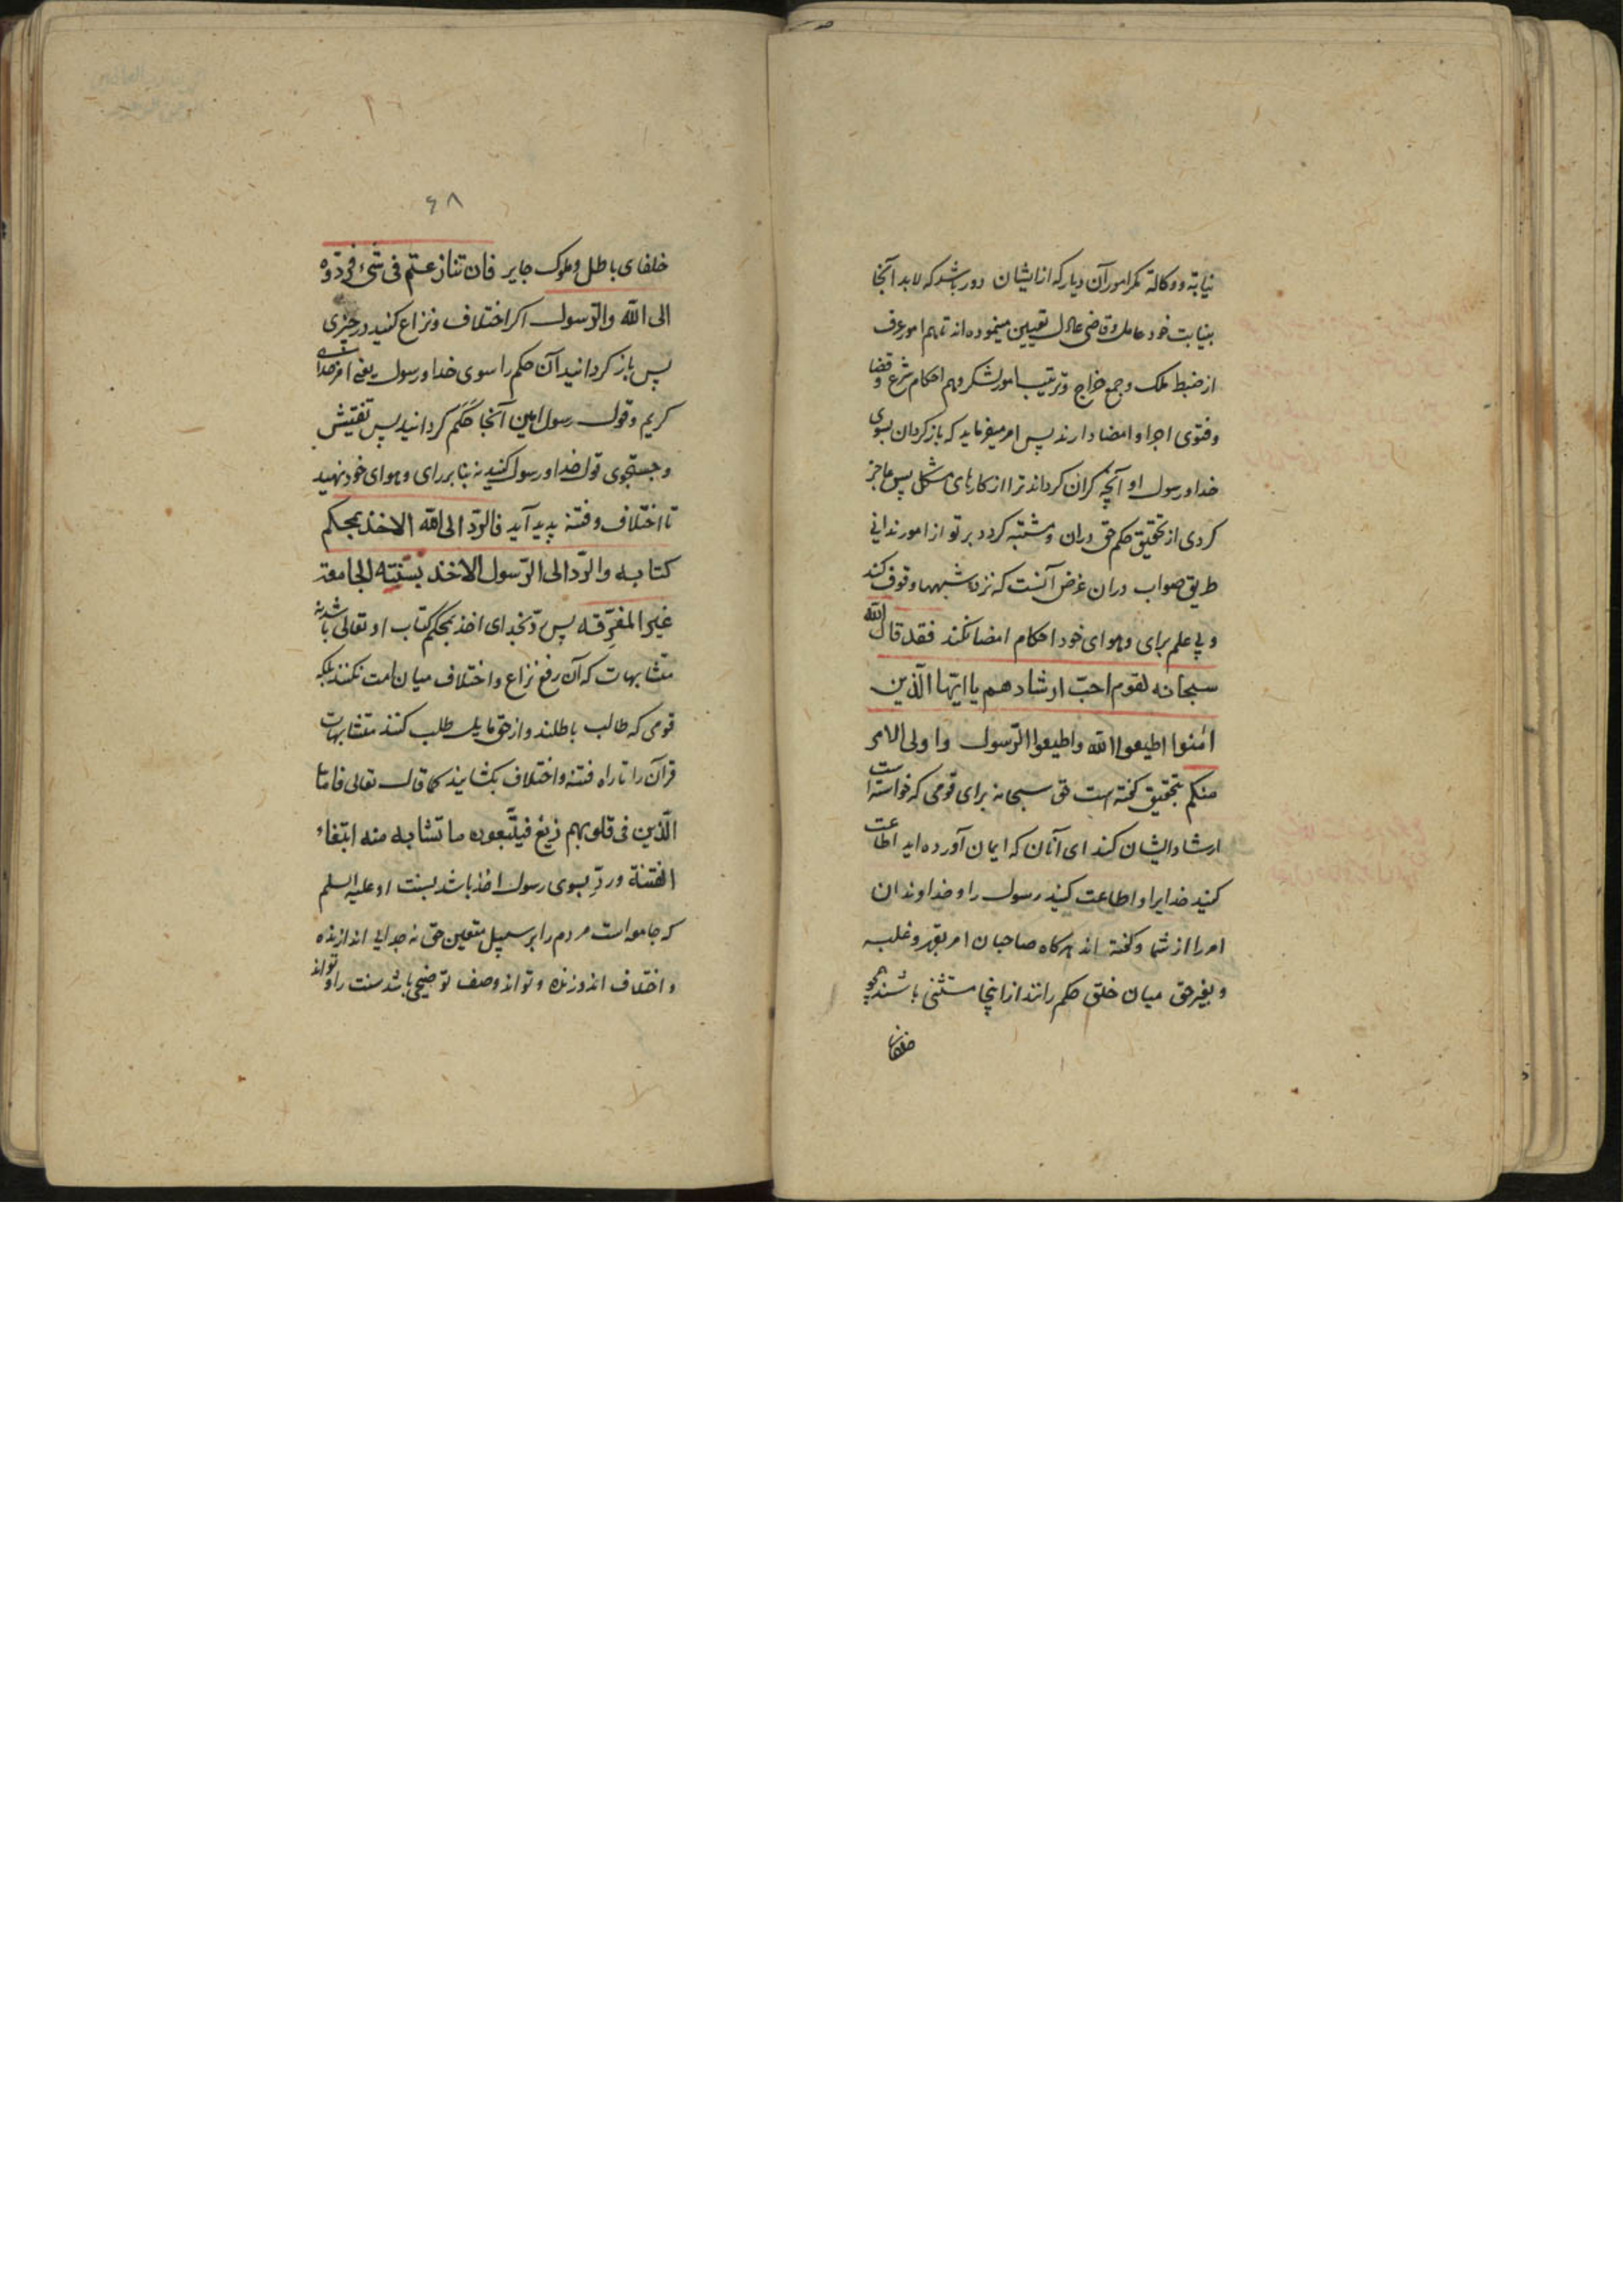 نیابة و وکالة مکر امور آن دیار که از ایشان دور باشد که لابد آنجا
بنیابت خود عامل و قاضی عادل تعیین مینموده‌اند تا هم امور عرف
از ضبط ملک و جمع خراج و ترتیب امور لشکر و هم احکام شرع و قضا
و فتوی اجرا و امضا دارند پس امر میفرماید که بازگردان بسوی
خدا و رسول او آنچه گران گرداند ترا از کارهای مشکل پس عاجز
کردی از تحقیق حکم حق دران و مشتبه کردد بر تو از امور ندانی
طریق صواب دران غرض آنست که نزد شبهها وقوف کند
و بی علم برای و هوای خود احکام امضا نکند فقد قال الله
سبحانه لقوم احبّ ارشادهم یا ایّها الّذین
امنوا اطیعوا الله و اطیعوا الرّسول و اولی الامر
منکم بتحقیق گفته است حق سبحانه برای قومی که خواسته است
ارشاد ایشان کند ای آنان که ایمان آورده‌اید اطاعت
کنید خدایرا و اطاعت کنید رسول را و خداوندان
امر را از شما و گفته‌اند هرگاه صاحبان امر بقهر و غلبه
و بغیر حق میان خلق حکم رانند از اینجا مستثنی باشند همچو
خلفای
۶۸
خلفای باطل و ملوک جایر فان تنازعتم فی شیء فردّوه
الی الله والرّسول اکر اختلاف و نزاع کنید در چیزی
پس باز کردانید آن حکم را سوی خدا و رسول یعنی امر خدای
کریم و قول رسول امین آنجا حَکَم کردانید پس تفتیش
و جستجوی قول خدا و رسول کنید نه بنا بر رای و هوای خود نهید
تا اختلاف و فتنه پدید آید فالردّ الی الله الاخذ بمحکم
کتابه والردّ الی الرّسول الاخذ بسنّته الجامعة
غیر المفرّقه پس ردّ بخدای اخذ بمحکم کتاب او تعالی باشد نه
متشابهات که آن رفع نزاع و اختلاف میان امت نکند بلکه
قومی که طالب باطلند و از حق مایل طلب کنند متشابهات
قرآن را تا راه فتنه و اختلاف بکشایند کما قال تعالی فامّا
الّذین فی قلوبهم زیغ فیتّبعون ما تشابه منه ابتغاء
الفتنة و ردّ بسوی رسول اخذ باشد بسنت او علیه السلم
که جامع است مردم را بر سبیل متعین حق نه جدایی اندازنده
و اختلاف اندوزنده و تواند وصف توضیحی باشد سنت را و تواند